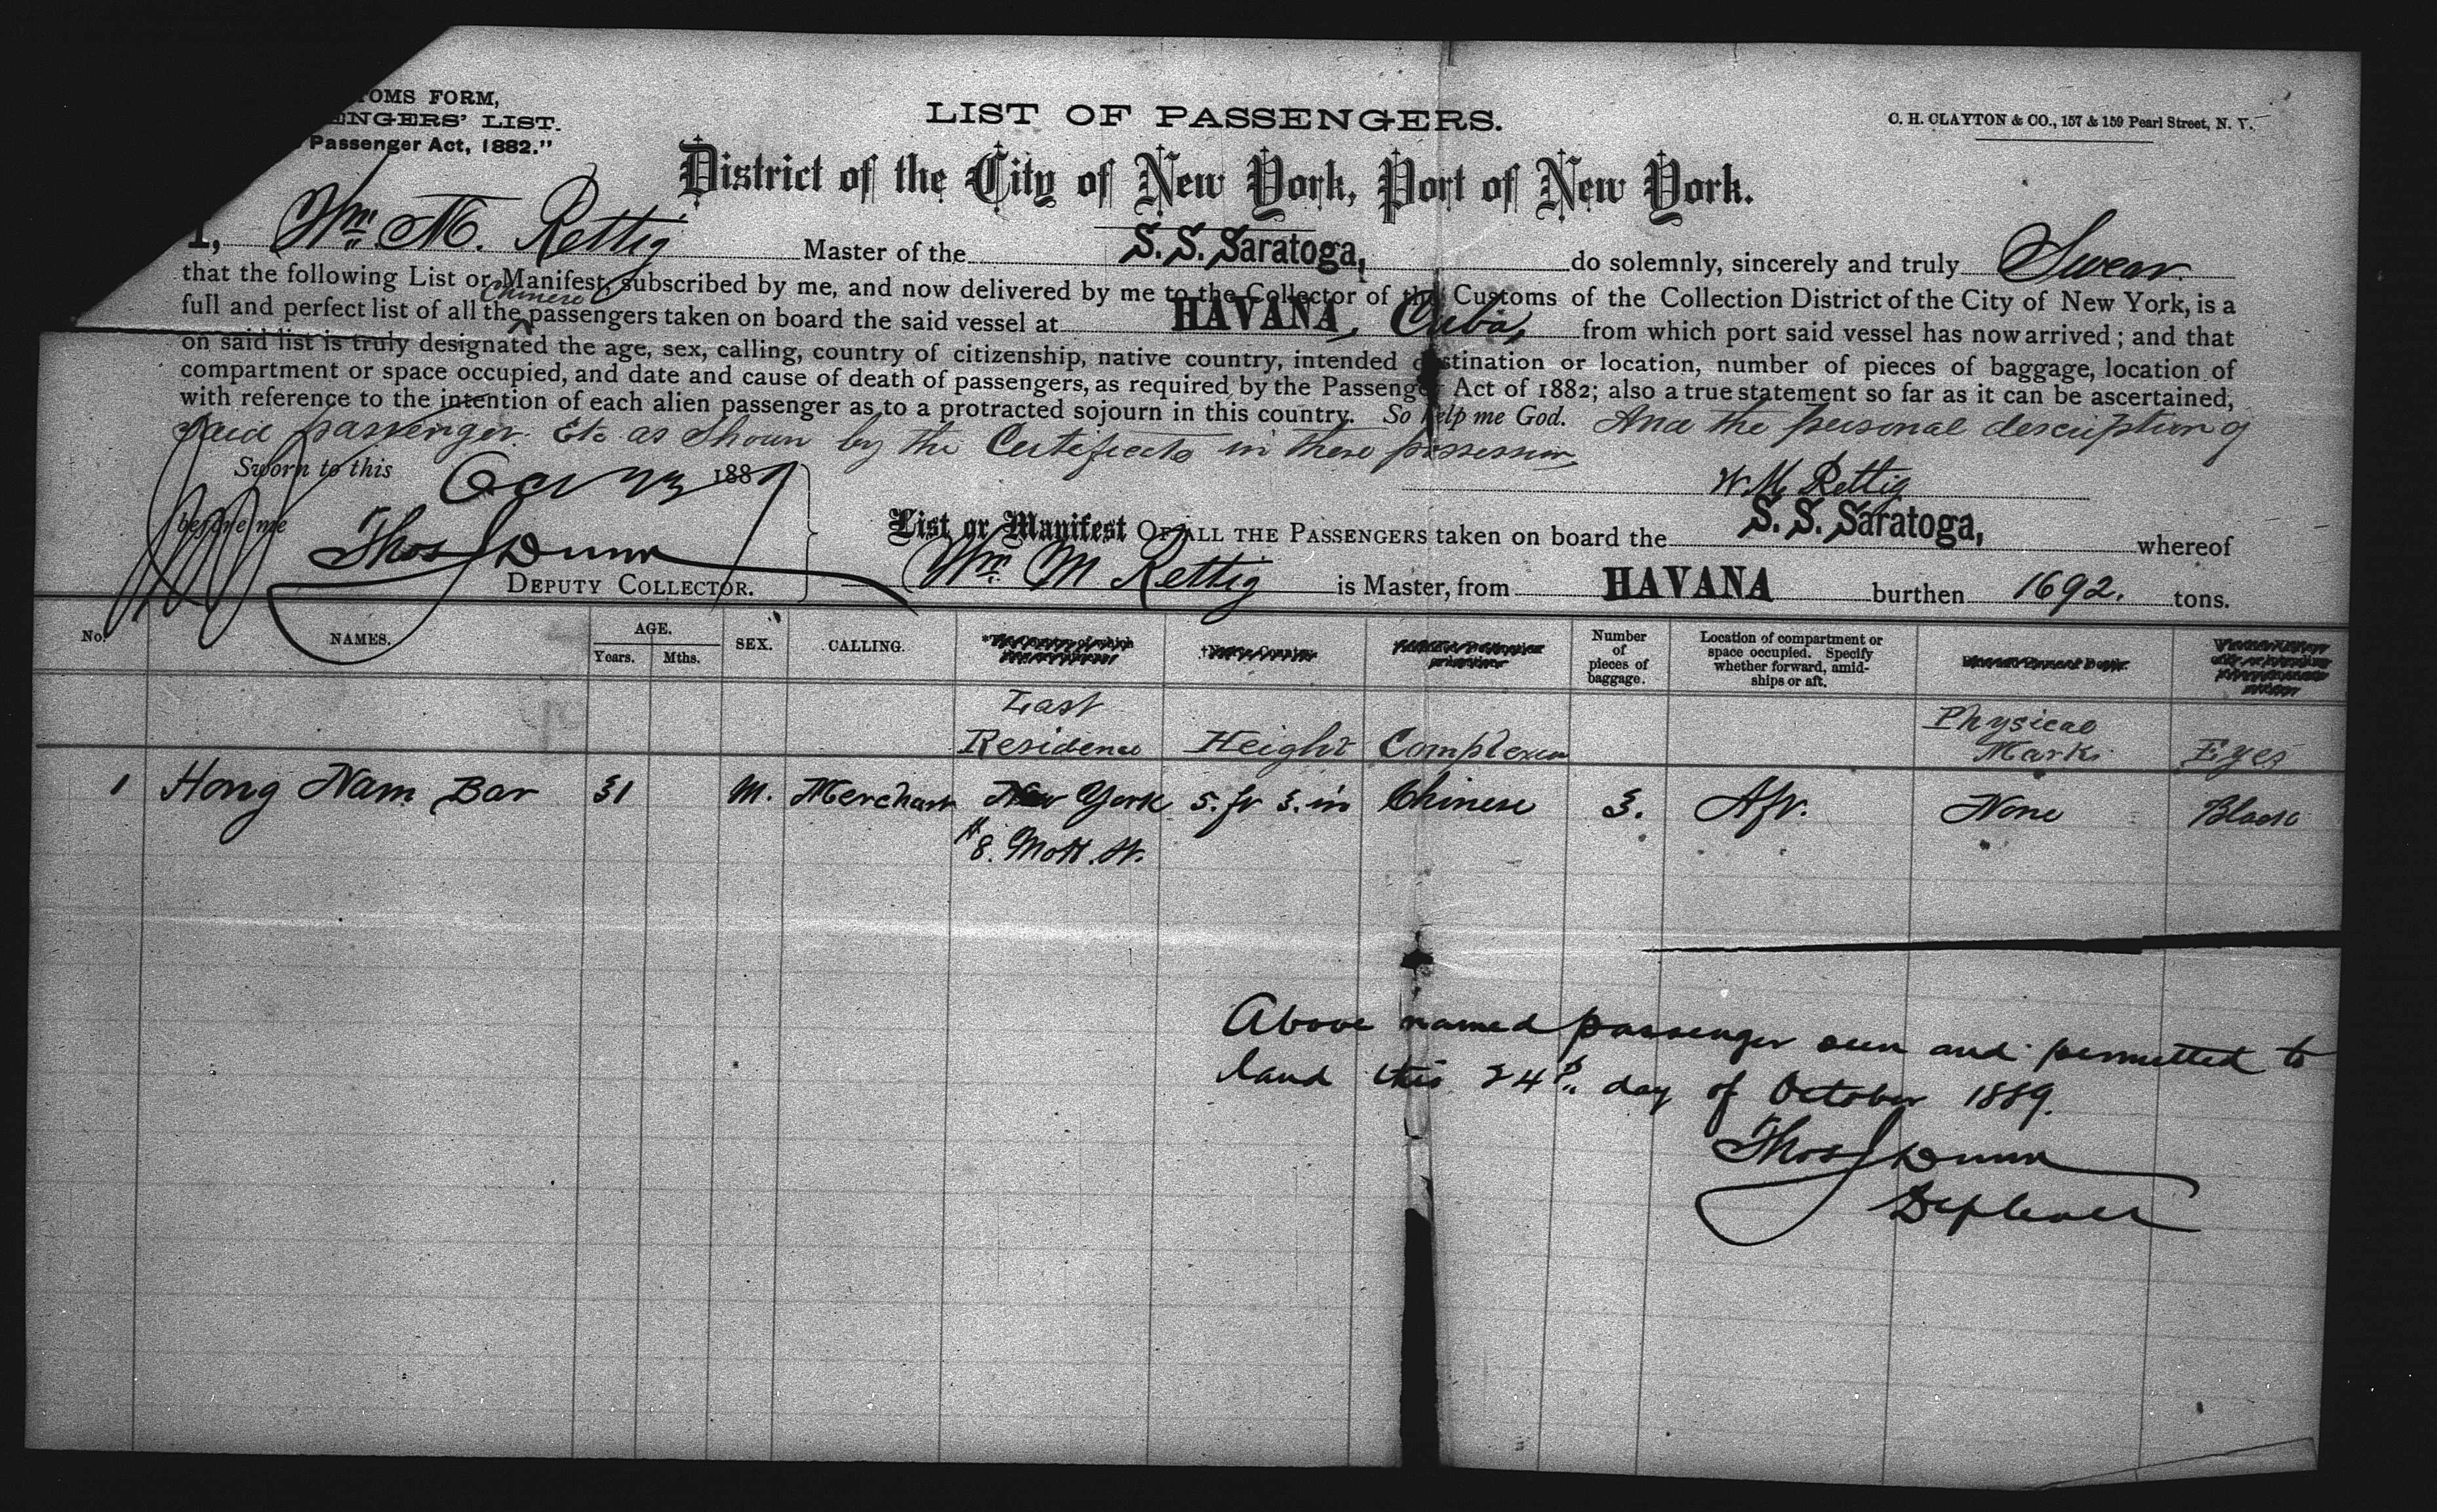 OMS FORM,
ENGERS' LIST.
Passenger Act, 1882."
LIST OF PASSENGERS.
C. H. CLAYTON & CO., 157 & 159 Pearl Street, N. Y.
District of the City of New York, Port of New York.
I, Wm. M. Rettig Master of the S. S. Saratoga, do solemnly, sincerely and truly Swear
that the following List or Manifest, subscribed by me, and now delivered by me to the Collector of the Customs of the Collection District of the City of New York, is a
full and perfect list of all the Chinese passengers taken on board the said vessel at HAVANA, Cuba, from which port said vessel has now arrived; and that
on said list is truly designated the age, sex, calling, country of citizenship, native country, intended destination or location, number of pieces of baggage, location of
compartment or space occupied, and date and cause of death of passengers, as required by the Passenger Act of 1882; also a true statement so far as it can be ascertained,
with reference to the intention of each alien passenger as to a protracted sojourn in this country. So help me God. And the personal description of
said passenger. Etc as shown by the Certificate in there possession
Sworn to this 188
W. M. Rettig
before me Thos J Dunn
DEPUTY COLLECTOR.
List or Manifest OF ALL THE PASSENGERS taken on board the S. S. Saratoga, whereof
Wm. M Rettig is Master, from HAVANA burthen 1692. tons.
No. NAMES. AGE. Years. Mths. SEX. CALLING. Number of pieces of baggage. Location of compartment or space occupied. Specify whether forward, amidships or aft.
Last Residence Height Complexion Physical Marks Eyes
1 Hong Nam Bar 31 M. Merchant New York 5. ft 3. in Chinese 3. Aft. None Black
# 8. Mott. St.
Above named passenger seen and permitted to
land this 24th day of October 1889.
Thos J Dunn